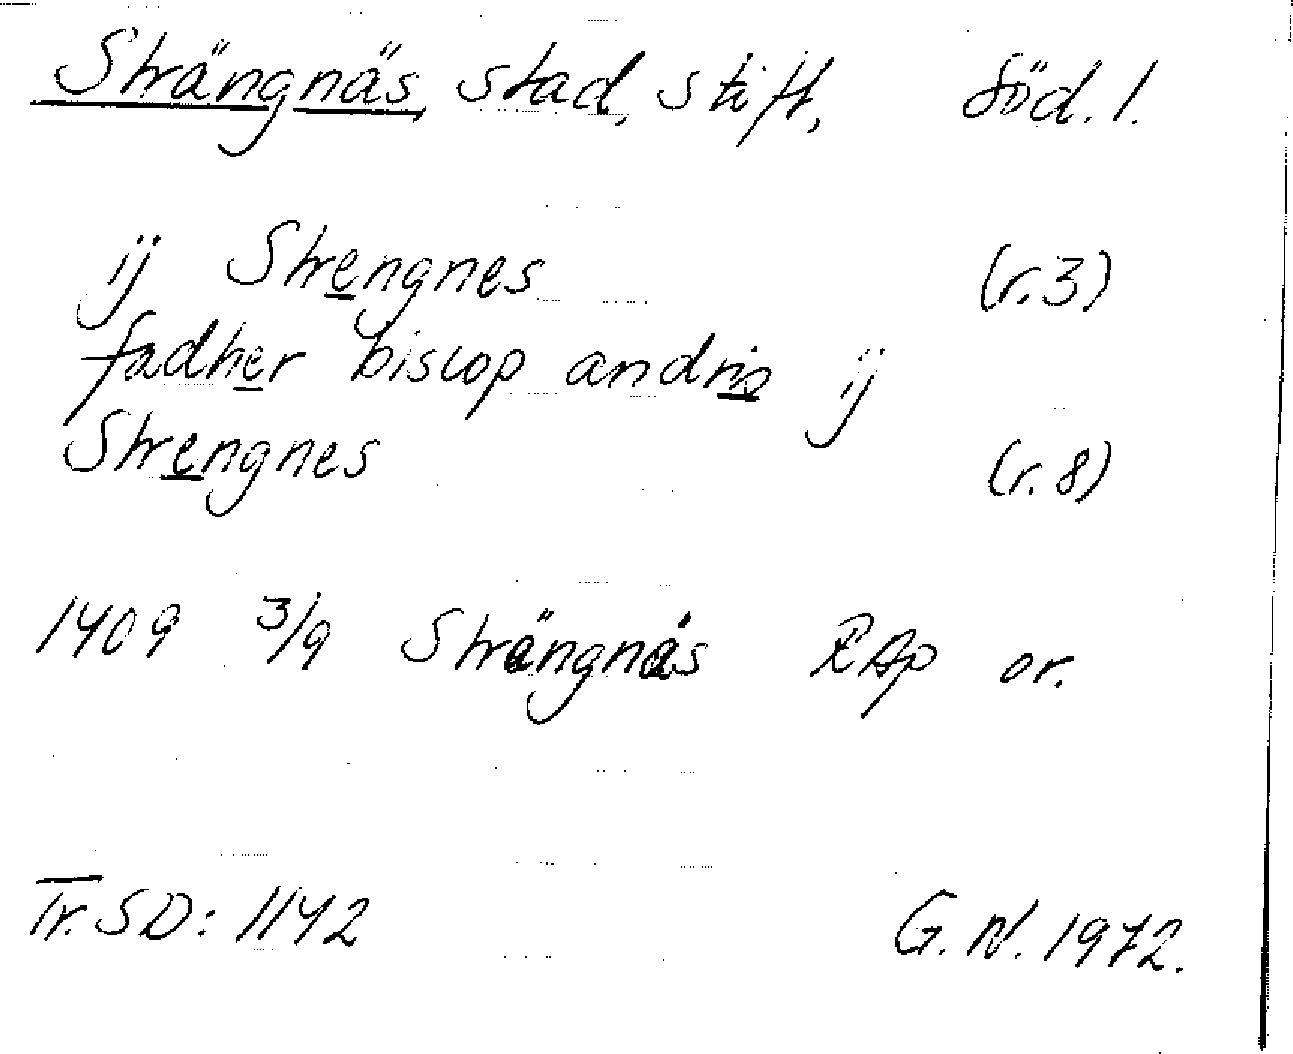 Strängnäs, stad, stift, Söd. l.
ij Strengnes (r.3)
fadher biscop andris ij
Strengnes (r.8)
1409 3/9 Strängnäs RAp or.
Tr. SD: 1142 G.N. 1972.